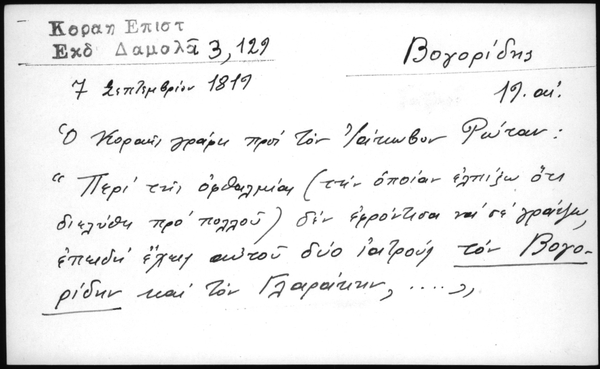 Κοραη Επιστ
Εκδ Δαμαλᾶ 3, 129
Βογορίδης
7 Σεπτεμβρίου 1819
19. αἰ.
Ὁ Κοραῆς γράφει πρὸς τὸν Ἰάκωβον Ρώταν:
"Περὶ τῆς ὀφθαλμίας (τὴν ὁποίαν ἐλπίζω ὅτι
διελύθη πρὸ πολλοῦ) δὲν ἐφρόντισα νὰ σὲ γράψω,
ἐπειδὴ ἔχεις αὐτοῦ δύο ἰατροὺς τὸν Βογο-
ρίδην καὶ τὸν Γλαράκην, .....,,